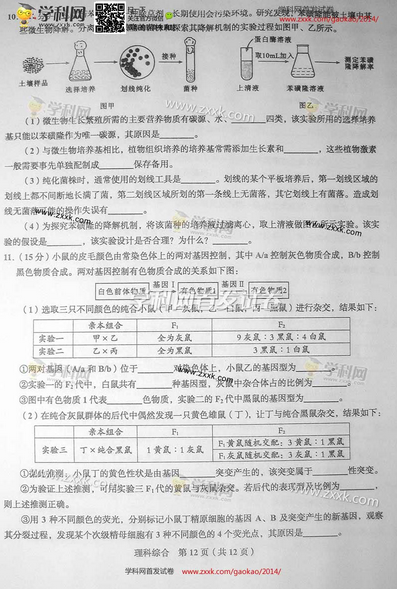 学科网首发试卷
www.zxxk.com/gaokao/2014/
学科网
土壤样品
选择培养
划线纯化
接种
菌种
蛋白酶溶液
取10mL加入
上清液
苯磺隆溶液
测定苯磺
隆降解率
图甲
图乙
（1）微生物生长繁殖所需的主要营养物质有碳源、水、 四类，该实验所用的选择培养
基只能以苯磺隆作为唯一碳源，其原因是 。
（2）与微生物培养基相比，植物组织培养的培养基常需添加生长素和 ，这些植物激素
一般需要事先单独配制成 保存备用。
（3）纯化菌株时，通常使用的划线工具是 。划线的某个平板培养后，第一划线区域的
划线上都不间断地长满了菌，第二划线区域所划的第一条线上无菌落，其它划线上有菌落。造成划
线无菌落可能的操作失误有 。
（4）为探究苯磺隆的降解机制，将该菌种的培养液过滤离心，取上清液做图乙所示实验。该实
验的假设是 ，该实验设计是否合理？为什么？ 。
11.（15分）小鼠的皮毛颜色由常染色体上的两对基因控制，其中 A/a 控制灰色物质合成，B/b 控制
黑色物质合成。两对基因控制有色物质合成的关系如下图：
白色前体物质 基因Ⅰ 有色物质1 基因Ⅱ 有色物质2
（1）选取三只不同颜色的纯合小鼠（甲—灰鼠，乙—白鼠，丙—黑鼠）进行杂交，结果如下：
亲本组合 F1 F2
实验一 甲×乙 全为灰鼠 9灰鼠：3黑鼠：4白鼠
实验二 乙×丙 全为黑鼠 3黑鼠：1白鼠
①两对基因（A/a 和 B/b）位于 对染色体上，小鼠乙的基因型为 。
②实验一的 F2代中，白鼠共有 种基因型，灰鼠中杂合体占的比例为 。
③图中有色物质1代表 色物质，实验二的 F2代中黑鼠的基因型为 。
（2）在纯合灰鼠群体的后代中偶然发现一只黄色雄鼠（丁），让丁与纯合黑鼠杂交，结果如下：
亲本组合 F1 F2
实验三 丁×纯合黑鼠 1黄鼠：1灰鼠 F1黄鼠随机交配：3黄鼠：1黑鼠
F1灰鼠随机交配：3灰鼠：1黑鼠
①据此推测：小鼠丁的黄色性状是由基因 突变产生的，该突变属于 性突变。
②为验证上述推测，可用实验三 F1代的黄鼠与灰鼠杂交。若后代的表现型及比例为 ，
则上述推测正确。
③用3种不同颜色的荧光，分别标记小鼠丁精原细胞的基因 A、B 及突变产生的新基因，观察
其分裂过程，发现某个次级精母细胞有3种不同颜色的4个荧光点，其原因是 。
理科综合 第12页（共12页）
学科网首发试卷 www.zxxk.com/gaokao/2014/